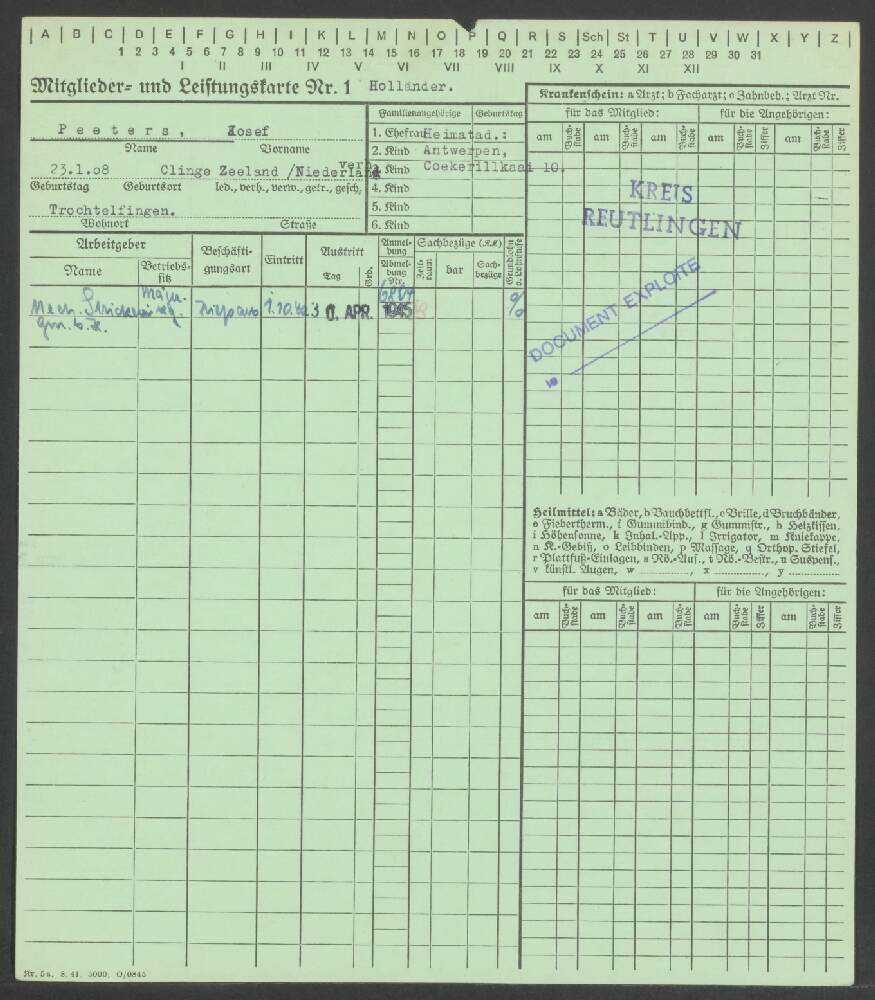 A B C D E F G H I K L M N O P Q R S Sch St T U V W X Y Z
1 2 3 4 5 6 7 8 9 10 11 12 13 14 15 16 17 18 19 20 21 22 23 24 25 26 27 28 29 30 31
I II III IV V VI VII VIII IX X XI XII
Mitglieder- und Leistungskarte Nr. 1 Holländer.
Peeters, Josef
Name Vorname
23.1.08 Clinge Zeeland /Niederland verh.
Geburtstag Geburtsort led., verh., verw., getr., gesch.
Trochtelfingen.
Wohnort Straße
Familienangehörige Geburtstag
1. Ehefrau Heimatad.:
2. Kind Antwerpen,
3. Kind Cockerillkaai 10.
4. Kind
5. Kind
6. Kind
Arbeitgeber
Name Betriebs-sitz
Beschäfti-gungsart
Eintritt
Austritt
Tag Grd.
Anmel-dung
Abmel-dung Nr.
Sachbezüge (RM)
Zeit-raum bar Sach-bezüge
Grundlohn o. Lohnstufe
Mech. Strickerei
Gm.b.H.
1.10.42
30. APR. 1945
Krankenschein: a Arzt; b Facharzt; c Zahnbeh.; Arzt Nr.
für das Mitglied: für die Angehörigen:
am Buch-stabe am Buch-stabe am Buch-stabe am Buch-stabe Ziffer am Buch-stabe Ziffer
KREIS
REUTLINGEN
DOCUMENT EXPLOITE
Heilmittel: a Bäder, b Bauchbettfl., c Brille, d Bruchbänder,
e Fiebertherm., f Gummibind., g Gummistr., h Heizkissen,
i Höhensonne, k Inhal.-App., l Irrigator, m Kniekappe,
n K.-Gebiß, o Leibbinden, p Massage, q Orthop. Stiefel,
r Plattfuß-Einlagen, s Rö.-Auf., t Rö.-Bestr., u Suspens.,
v künstl. Augen, w ............, x ............, y ............
für das Mitglied: für die Angehörigen:
am Buch-stabe am Buch-stabe am Buch-stabe am Buch-stabe Ziffer am Buch-stabe Ziffer
Nr. 5a. 8. 41. 5000. O/0845